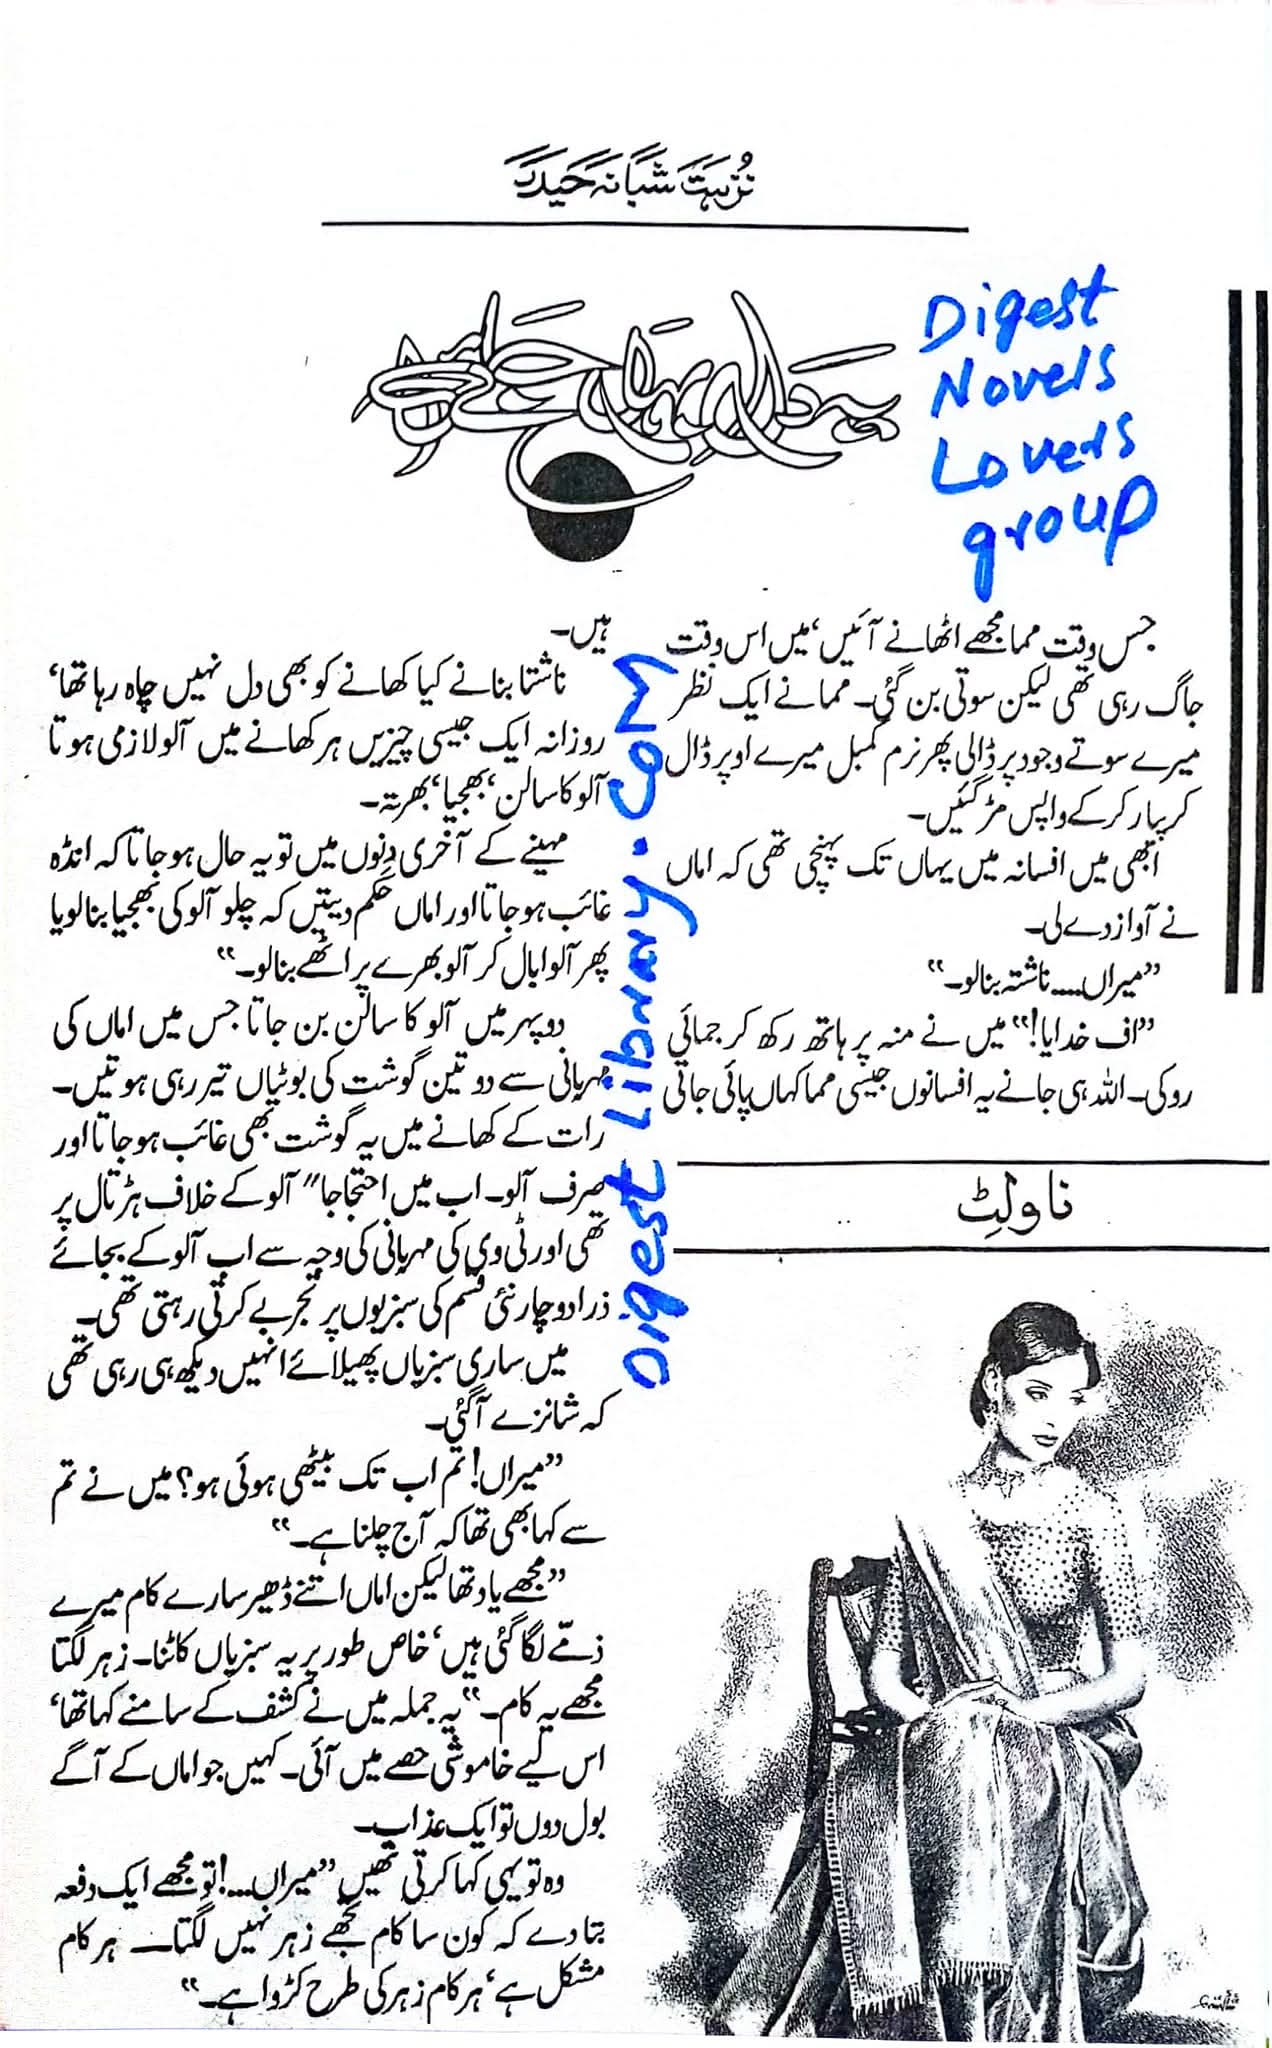 نزہت شبانہ حیدر
Digest
Novels
Lovers
group
جس وقت مما مجھے اٹھانے آئیں، میں اس وقت
جاگ رہی تھی لیکن سوتی بن گئی۔ ممانے ایک نظر
میرے سوتے وجود پر ڈالی پھر نرم کمبل میرے اوپر ڈال
کر پیار کر کے واپس مڑ گئیں۔
ابھی میں افسانہ میں یہاں تک پہنچی تھی کہ اماں
نے آواز دے لی۔
”میراں.... ناشتہ بنالو۔“
”اف خدایا!“ میں نے منہ پر ہاتھ رکھ کر جمائی
روکی۔ اللہ ہی جانے یہ افسانوں جیسی مما کہاں پائی جاتی
ہیں۔
ناشتا بنانے کیا کھانے کو بھی دل نہیں چاہ رہا تھا،
روزانہ ایک جیسی چیزیں ہر کھانے میں آلو لازمی ہوتا
آلو کا سالن، بھجیا، بھرتہ۔
مہینے کے آخری دنوں میں تو یہ حال ہو جاتا کہ انڈہ
غائب ہو جاتا اور اماں حکم دیتیں کہ چلو آلو کی بھجیا بنالو یا
پھر آلو ابال کر آلو بھرے پراٹھے بنالو۔“
دوپہر میں آلو کا سالن بن جاتا جس میں اماں کی
مہربانی سے دو تین گوشت کی بوٹیاں تیر رہی ہوتیں۔
رات کے کھانے میں یہ گوشت بھی غائب ہو جاتا اور
صرف آلو۔ اب میں احتجاجا” آلو کے خلاف ہڑتال پر
تھی اور ٹی وی کی مہربانی کی وجہ سے اب آلو کے بجائے
ذرا دو چار نئی قسم کی سبزیوں پر تجربے کرتی رہتی تھی۔
میں ساری سبزیاں پھیلائے انہیں دیکھ ہی رہی تھی
کہ شانزے آگئی۔
”میراں! تم اب تک بیٹھی ہوئی ہو؟ میں نے تم
سے کہا بھی تھا کہ آج چلنا ہے۔“
”مجھے یاد تھا لیکن اماں اتنے ڈھیر سارے کام میرے
ذمے لگا گئی ہیں، خاص طور پر یہ سبزیاں کاٹنا۔ زہر لگتا
مجھے یہ کام۔“ یہ جملہ میں نے کشف کے سامنے کہا تھا،
اس لیے خاموشی حصے میں آئی۔ کہیں جو اماں کے آگے
بول دوں تو ایک عذاب۔
وہ تو یہی کہا کرتی تھیں ”میراں...! تو مجھے ایک دفعہ
بتا دے کہ کون سا کام تجھے زہر نہیں لگتا۔ ہر کام
مشکل ہے، ہر کام زہر کی طرح کڑوا ہے۔“
Digest Library.com
ناولٹ